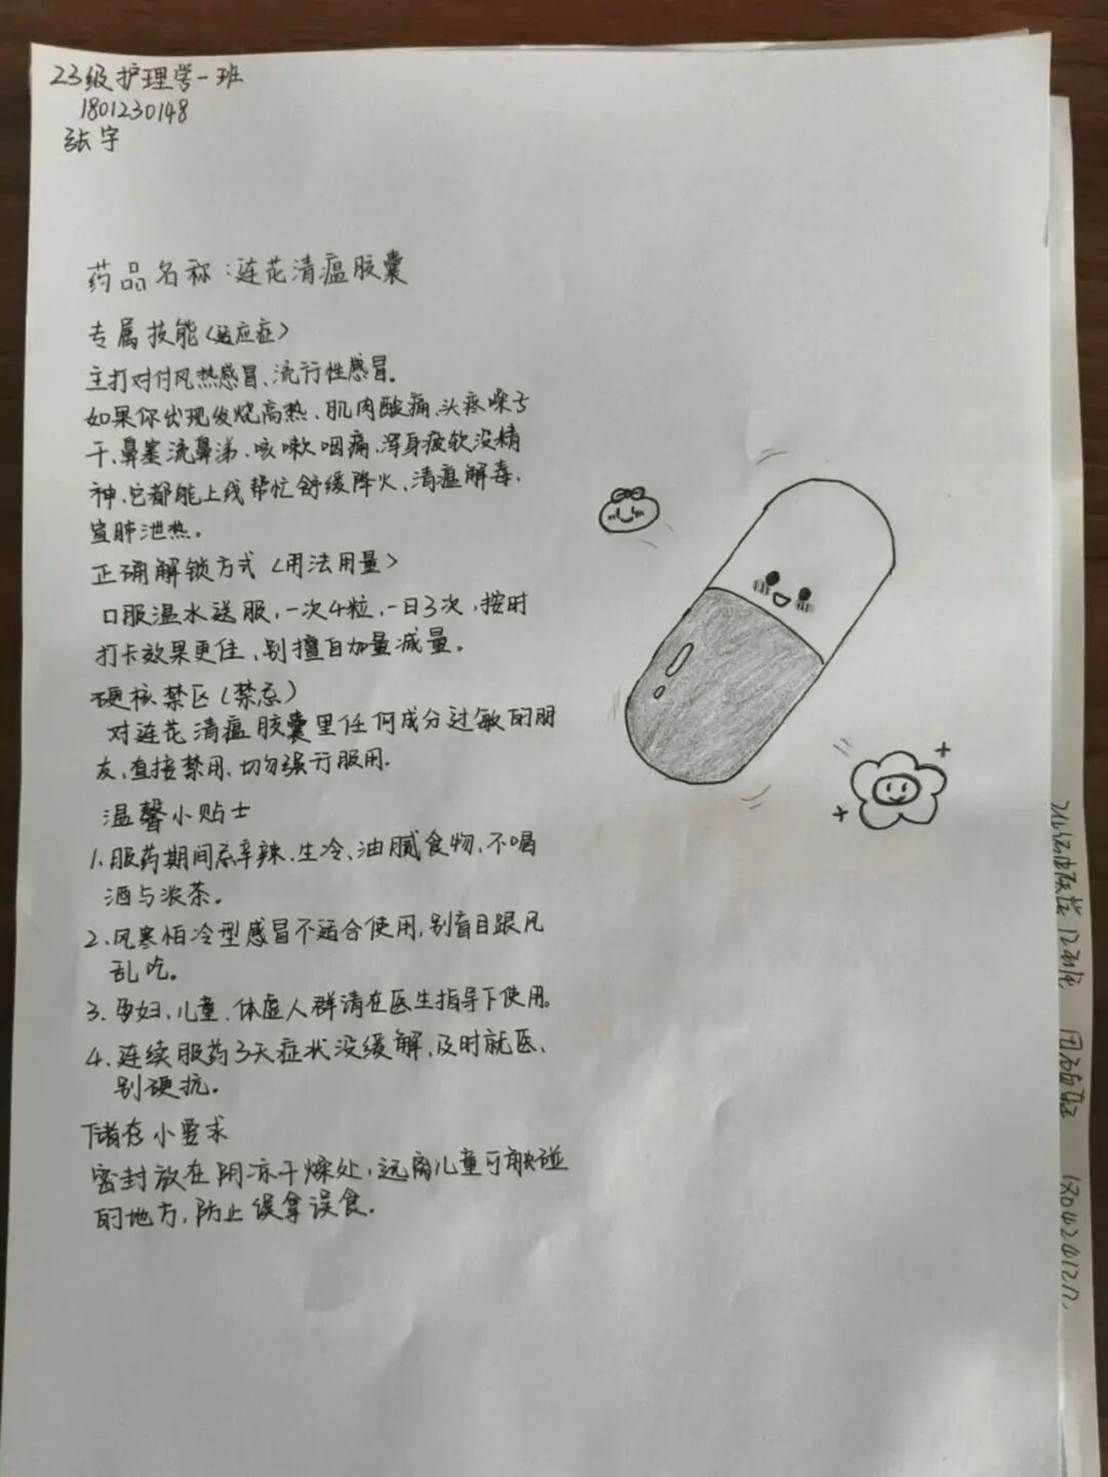 23级护理学一班
1801230148
张宇
药品名称：连花清瘟胶囊
专属技能（适应症）
主打对付风热感冒、流行性感冒。
如果你出现发烧高热、肌肉酸痛、头疼嗓子
干、鼻塞流鼻涕、咳嗽咽痛、浑身疲软没精
神、它都能上线帮忙舒缓降火、清瘟解毒、
宣肺泄热。
正确解锁方式（用法用量）
口服温水送服，一次4粒，一日3次，按时
打卡效果更佳，别擅自加量减量。
硬核禁区（禁忌）
对连花清瘟胶囊里任何成分过敏的朋
友，直接禁用，切勿强行服用.
温馨小贴士
1.服药期间忌辛辣、生冷、油腻食物，不喝
酒与浓茶。
2.风寒怕冷型感冒不适合使用，别盲目跟风
乱吃。
3.孕妇、儿童、体虚人群请在医生指导下使用。
4.连续服药3天症状没缓解，及时就医、
别硬抗。
储存小要求
密封放在阴凉干燥处，远离儿童可触碰
的地方，防止误拿误食.